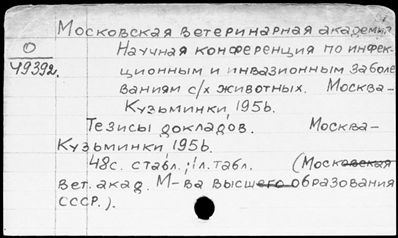 Московская ветеринарная академия
О
49392.
Научная конференция по инфек-
ционным и инвазионным заболе
ваниям с/х животных. Москва-
Кузьминки, 1956.
Тезисы докладов. Москва-
Кузьминки, 1956.
48с. с табл.; 1л. табл. (Московская
вет. акад. М-ва высшего образования
СССР.).